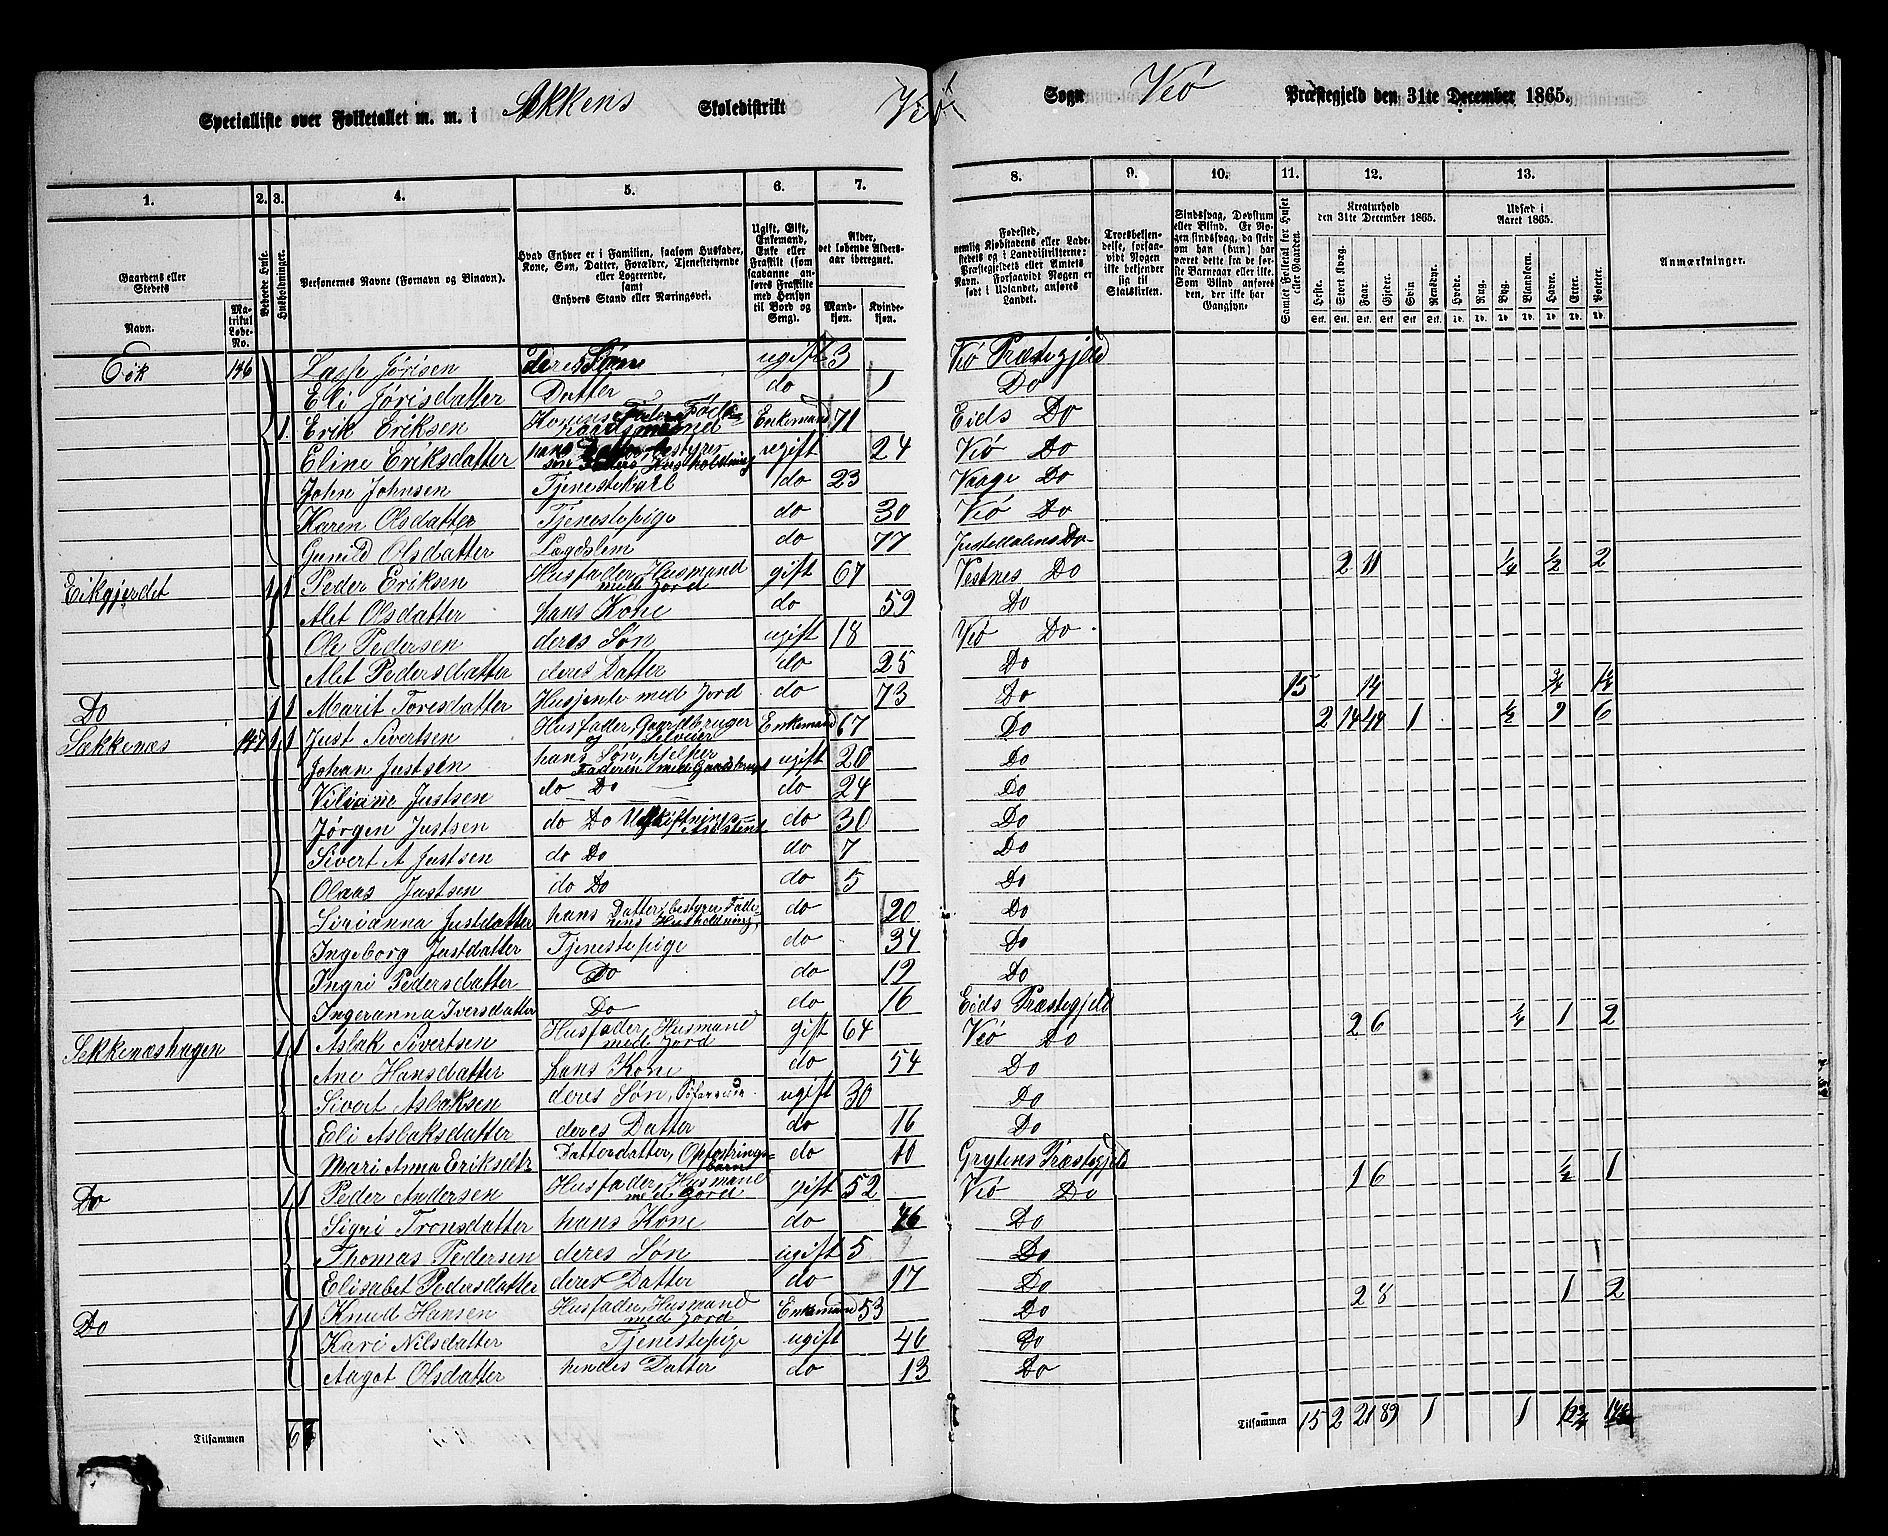 Specialliste over Folketallet m. m. i Sækkens Skoledistrikt Veø Sogn Veø Præstegjeld den 31te December 1865.
1. 2. 3. 4. 5. 6. 7. 8. 9. 10. 11. 12. 13.
Gaardens eller Stedets Navn. Matrikul Løbe-No. Beboede Huse. Husholdninger. Personernes Navne (Fornavn og Binavn).
Hvad Enhver er i Familien, saasom Husfader, Kone, Søn, Datter, Forældre, Tjenestetyende eller Logerende, samt Enhvers Stand eller Næringsvei.
Ugift, Gift, Enkemand, Enke eller Fraskilt (som saadanne anføres Fraskilte med Hensyn til Bord og Seng).
Alder, det løbende Alders-aar iberegnet. Mandkjøn. Kvindekjøn.
Fødested, nemlig Kjøbstadens eller Ladestedets og i Landdistrikterne: Præstegjeldets eller Amtets Navn. Forsaavidt Nogen er født i Udlandet, anføres Landet.
Troesbekjendelse, forsaavidt Nogen ikke bekjender sig til Statskirken.
Sindssvag, Døvstum eller Blind. Er Nogen sindssvag, da skriv om han (hun) har været dette fra de første Barneaar eller ikke. Som Blind anføres den, der ikke har Gangsyn.
Samlet Folketal for Huset eller Gaarden.
Kreaturhold den 31te December 1865. Heste. Stort Kvæg. Faar. Gjeder. Svin. Rensdyr.
Udsæd i Aaret 1865. Hvede. Rug. Byg. Blandkorn. Havre. Erter. Poteter.
Anmærkninger.
Eik 146 Jørisen deres Søn ugift 3 Veø Præstegjeld
Eli Jørisdatter Datter do 1 Do
1 Erik Eriksen Konens Fader Enkemand 71 Eids Do
Eline Eriksdatter hans Datter bestyrer sin Faders Husholdning ugift 24 Veø Do
John Johnsen Tjenestekarl do 23 Vaage Do
Karen Olsdatter Tjenestepige do 30 Veø Do
Gunild Olsdatter Lægdslem do 77 Justedalens Do
Eikgjerdet 1 1 Peder Eriksen Husfader, Husmand med Jord gift 67 Vestnes Do 2 11 1/4 1/2 2
Alet Olsdatter hans Kone do 59 Do
Ole Pedersen deres Søn ugift 18 Veø Do
Alet Pedersdatter deres Datter do 25 Do
Do 1 1 Marit Toresdatter Husjente med Jord do 73 Do 15 14 3/4
Sækkenæs 147 1 1 Just Sivertsen Husfader, Gaardbruger og Selveier Enkemand 67 Do 2 14 44 1 1/2 9 6
Johan Justsen hans Søn, hjelper Faderen med Gaardsbruget ugift 20 Do
Justsen do Do do 24 Do
Jørgen Justsen do Do Udskiftnings-Assistent do 30 Do
Sivert A Justsen do Do do 7 Do
Olaus Justsen do Do do 5 Do
Sirianna Justdatter hans Datter, bestyrer Faderens Husholdning, do 20 Do
Ingeborg Justdatter Tjenestepige do 34 Do
Ingri Pedersdatter Do do 12 Do
Ingeranna Iversdatter Do do 16 Eids Præstegjeld
Sekkenæshagen 1 1 Aslak Sivertsen Husfader, Husmand med Jord gift 64 Veø Do 2 6 1/4 1 2
Ane Hansdatter hans Kone do 54 Do
Sivert Aslaksen deres Søn, ugift 30 Do
Eli Aslaksdatter deres Datter do 16 Do
Mari Anna Eriksdtr Datterdatter, Opfostringsbarn do 10 Grytens Præstegjeld
Do 1 1 Peder Andersen Husfader, Husmand med Jord gift 52 Veø Do 1 6 1/2 1
Sigri Tronsdatter hans Kone do Do
Thomas Pedersen deres Søn ugift 5 Do
Elisabet Pedersdatter deres Datter do 17 Do
Do 1 1 Knud Hansen Husfader, Husmand med Jord Enkemand 53 Do 2 8 1 2
Kari Nilsdatter Tjenestepige ugift 46 Do
Aagot Olsdatter hendes Datter do 13 Do
Tilsammen 6 7 Tilsammen 15 2 21 89 1 1 12 3/4